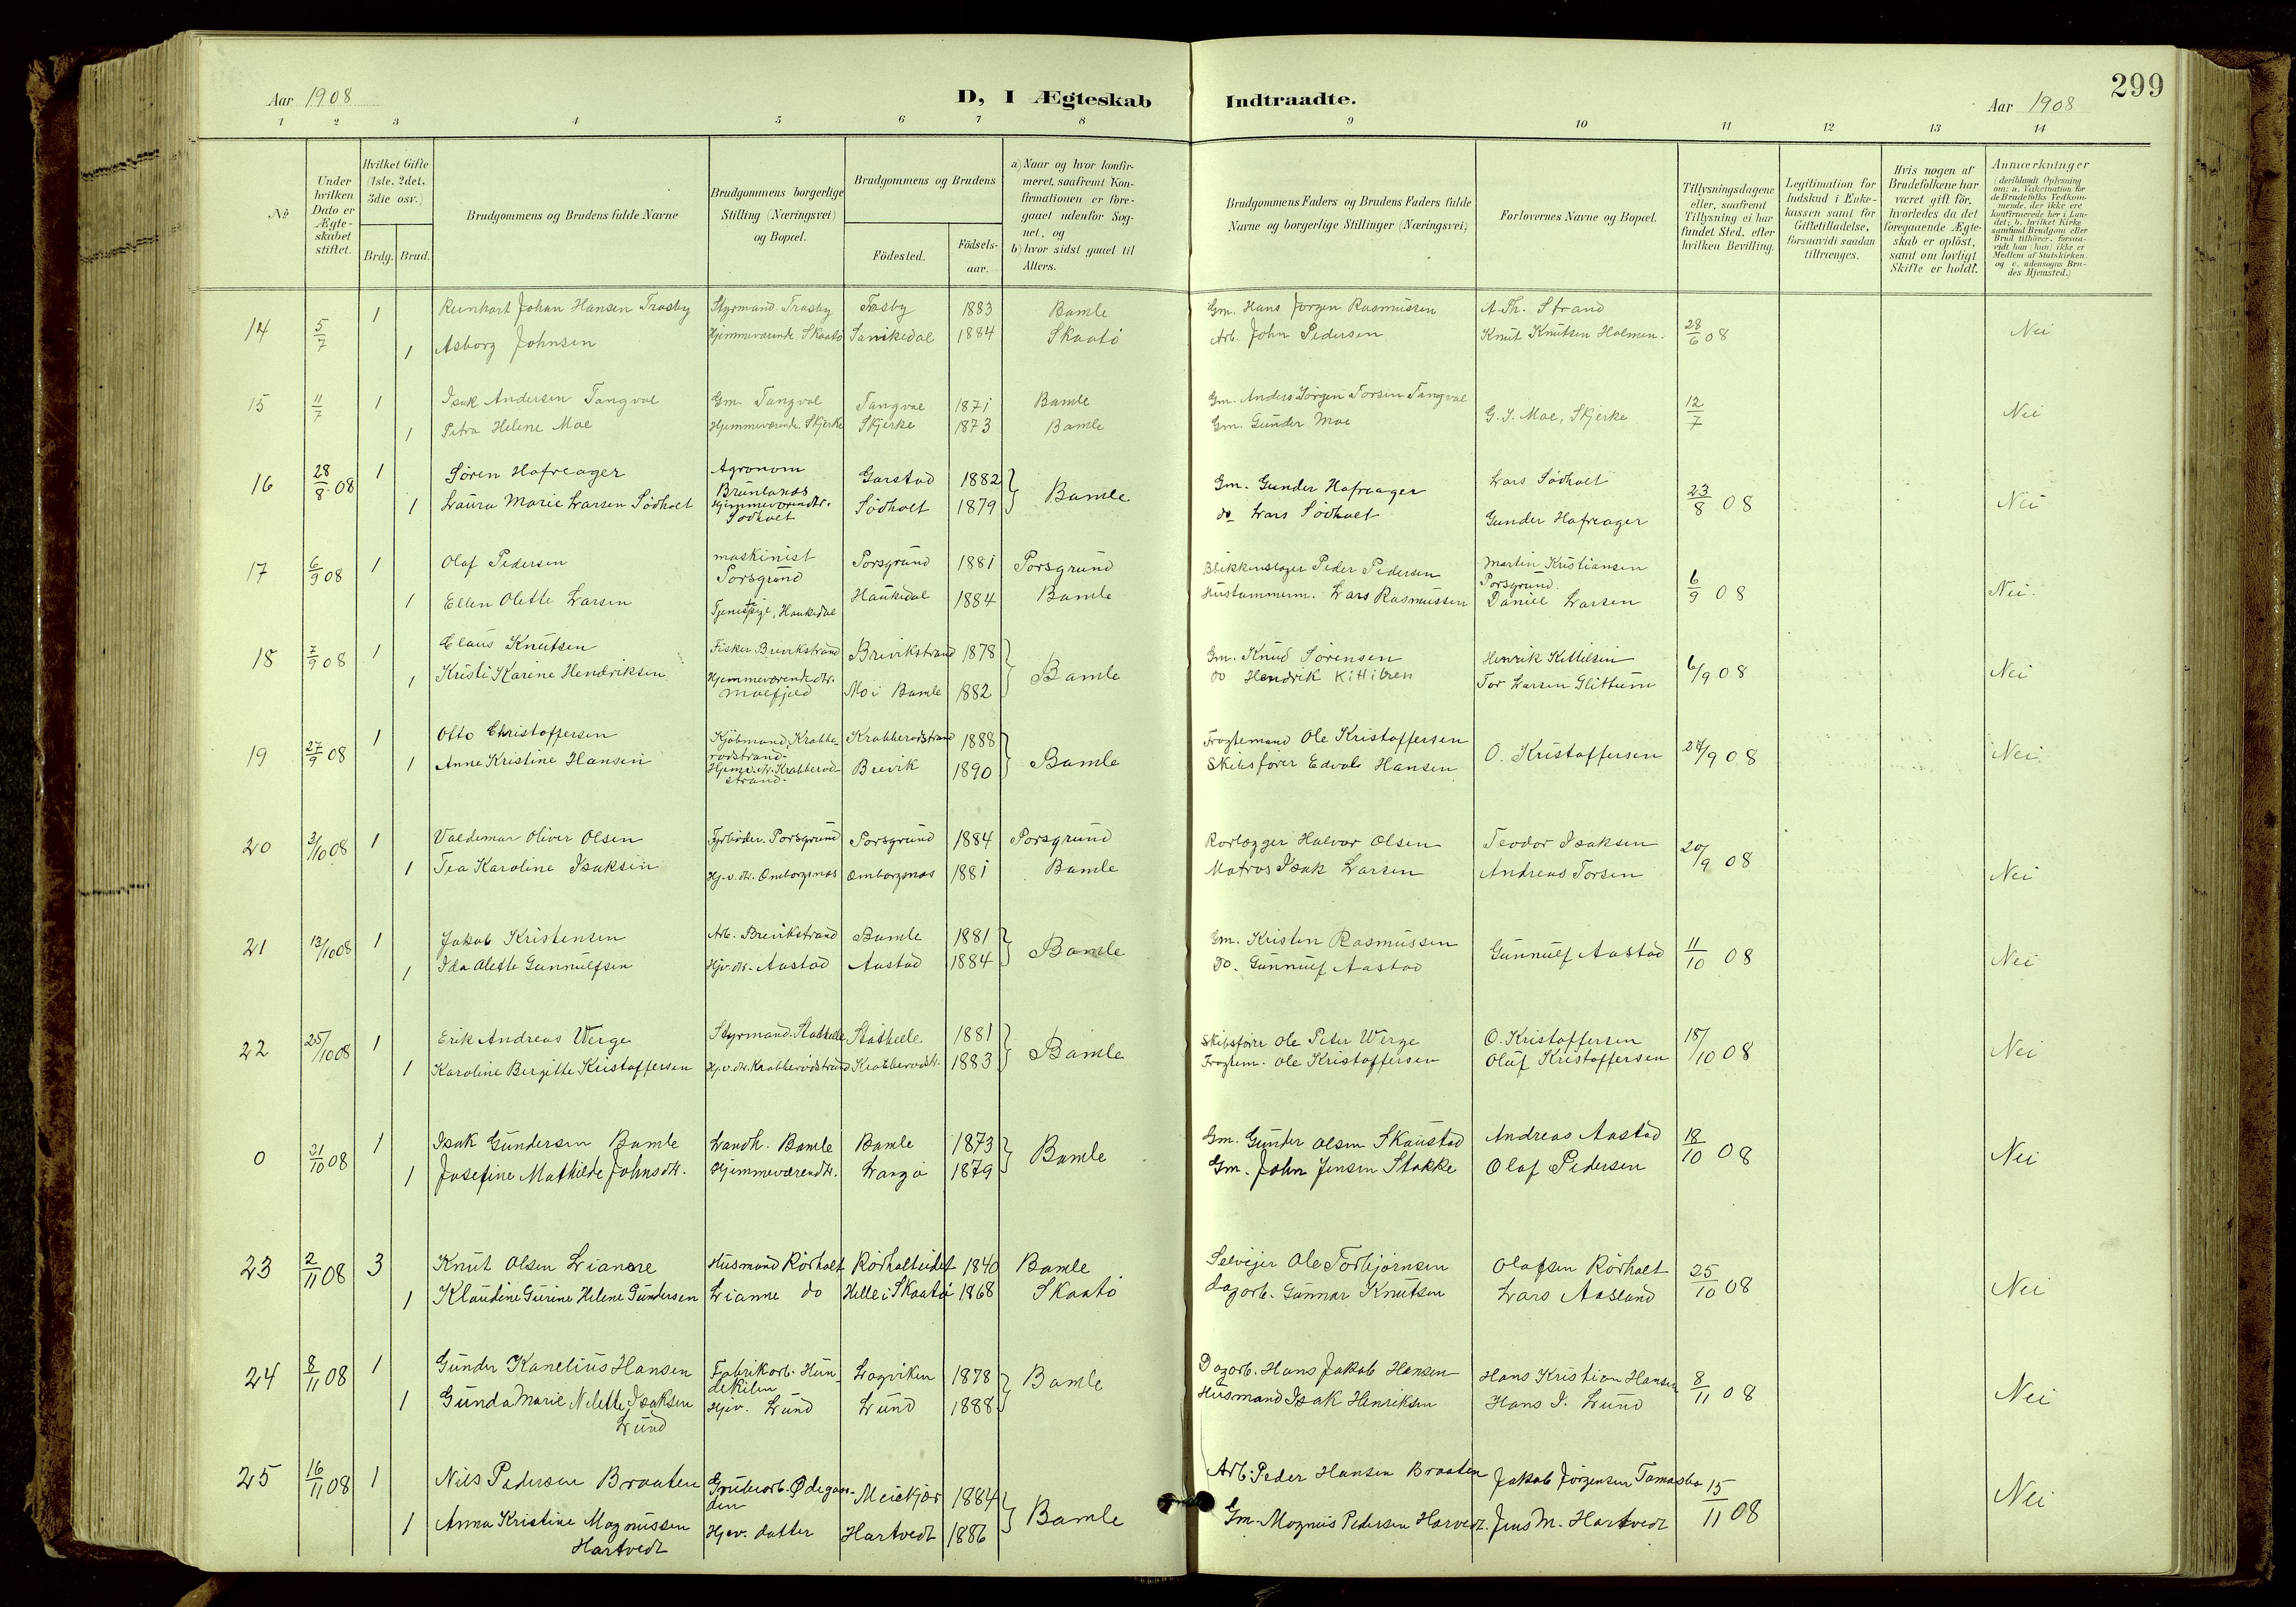 299
Aar 1908
D, I Ægteskab Indtraadte.
Aar 1908
1 2 3 4 5 6 7 8 9 10 11 12 13 14
No
Under hvilken Dato er Ægteskabet stiftet.
Hvilket Gifte (1ste, 2det, 3die osv.)
Brdg. Brud.
Brudgommens og Brudens fulde Navne
Brudgommens borgerlige Stilling (Næringsvei) og Bopæl.
Brudgommens og Brudens
Födested.
Födselsaar.
a) Naar og hvor konfirmeret, saafremt Konfirmationen er foregaaet udenfor Sognet, og
b) hvor sidst gaaet til Alters.
Brudgommens Faders og Brudens Faders fulde Navne og borgerlige Stillinger (Næringsvei)
Forlovernes Navne og Bopæl.
Tillysningsdagene eller, saafremt Tillysning ei har fundet Sted, efter hvilken Bevilling.
Legitimation for Indskud i Enkekassen samt for Giftetilladelse, forsaavidt saadan tiltrænges.
Hvis nogen af Brudefolkene har været gift för, hvorledes da det foregaaende Ægteskab er oplöst, samt om lovligt Skifte er holdt.
Anmærkninger (deriblandt Oplysning om: a. Vakcination for de Brudefolks Vedkommende, der ikke ere konfirmerede her i Landet; b. hvilket Kirkesamfund Brudgom eller Brud tilhörer, forsaavidt han (hun) ikke er Medlem af Statskirken. og c. udensogns Brudes Hjemsted.)
14 5/7 1 Reinhart Johan Hansen Trosby Styrmand. Trosby Trosby 1883 Bamle Gm. Hans Jørgen Rasmussen A. Th. Strand 28/6 08 Nei
1 Asborg Johnsen Hjemmeværende Skaatö Sannikedal 1884 Skaatö Arb. John Pedersen Knut Knutsen Holmen.
15 11/7 1 Isak Andersen Tangval Gm. Tangval Tangval 1871 Bamle Gm. Anders Jörgen Torsen Tangval G. J. Moe, Skjerke 12/7 Nei
1 Petra Helene Moe Hjemmeværende. Skjerke Skjerke 1873 Bamle Gm. Gunder Moe
16 28/8.08 1 Sören Hafreager Agronom Brunlanæs Garstad 1882 Bamle Gm. Gunder Hafreager Lars Södholt 23/8 08 Nei
1 Laura Marie Larsen Södholt Hjemmeværendtr. Södholt Södholt 1879 do Lars Södholt Gunder Hafreager
17 6/9 08 1 Olaf Pedersen maskinist Porsgrund Porsgrund 1881 Porsgrund Blikkenslager Peder Pedersen Martin Kristiansen Porsgrund. 6/9 08 Nei.
1 Ellen Olette Larsen Tjenestpige, Haukedal Haukedal 1884 Bamle Hustømmerm. Lars Rasmussen Daniel Larsen
18 7/9 08 1 Claus Knutsen Fisker Brevikstrand Brevikstrand 1878 Bamle Gm. Knud Sörensen Henrik Kittelsen 6/9 08 Nei
1 Kristi Karine Hendriksen Hjemmeværende dtr. Moefjeld Mo i Bamle 1882 do Hendrik Kittilsen Tor Larsen Glittum
19 27/9 08 1 Otto Christoffersen Kjöbmand, Krabberodstrand. Krabberodstrand 1888 Bamle Fragtemand Ole Kristoffersen O. Kristoffersen 27/9 08 Nei
1 Anne Kristine Hansen Hjemv. dtr. Krabberodstrand. Brevik 1890 Skibsförer Edvald Hansen
20 3/10 08 1 Valdemar Oliver Olsen Fyrböder. Porsgrund Porsgrund 1884 Porsgrund Rorlægger Halvor Olsen Teodor Isaksen 20/9 08 Nei
1 Tea Karoline Isaksen Hj.v. dtr. Omborgsnæs Omborgsnæs 1881 Bamle Matros Isak Larsen Andreas Torsen
21 13/10 08 1 Jakob Kristensen Arb. Brevikstrand Bamle 1881 Bamle Gm. Kristen Rasmussen Gunnulf Aastad 11/10 08 Nei
1 Ida Olette Gunnulfsen Hjv. dtr. Aastad Aastad 1884 Do. Gunnulf Aastad
22 25/10 08 1 Erik Andreas Werge Styrmand. Stathelle Stathelle 1881 Bamle Skibsförer Ole Peter Werge O. Kristoffersen 18/10 08 Nei
1 Karoline Bergitte Kristoffersen Hj.v. dtr. Krabberödstrand Krabberodstr. 1883 Fragtem. Ole Kristoffersen Oluf Kristoffersen
0 31/10 08 1 Isak Gundersen Bamle Landh. Bamle Bamle 1873 Bamle Gm. Gunder Olsen Skaustad Andreas Aastad 18/10 08 Nei
1 Josefine Mathilde Johnsdtr. Hjemmeværendtr. Langö 1879 Gm. John Jensen Stokke Olaf Pedersen
23 2/11 08 3 Knut Olsen Lianne Husmand Rörholt Rörholteidet 1840 Bamle Selveier Ole Torbjörnsen Olafsen Rörholt 25/10 08 Nei
1 Klaudine Gurine Helene Gundersen Lianne do Helle i Skaatö 1868 Skaatö dagarb. Gunnar Knutsen Lars Aasland
24 8/11 08 1 Gunder Kanelius Hansen Fabrikarb. Hundekilen Lagviken 1878 Bamle Dagarb. Hans Jakob Hansen Hans Kristian Hansen 8/11 08 Nei
1 Gunda Marie Nilette Isaksen Lund Hjev. Lund Lund 1888 Husmand Isak Henriksen Hans I. Lund
25 16/11 08 1 Nils Pedersen Braaten Grubearb. Ødegaarden Meiekjær 1884 Bamle Arb: Peder Hansen Braaten Jakob Jörgensen 15/11 08 Nei
1 Anna Kristine Magnussen Hartvedt Hjev. datter Hartvedt 1886 Gm. Magnus Pedersen Harvedt. Jens M. Hartvedt